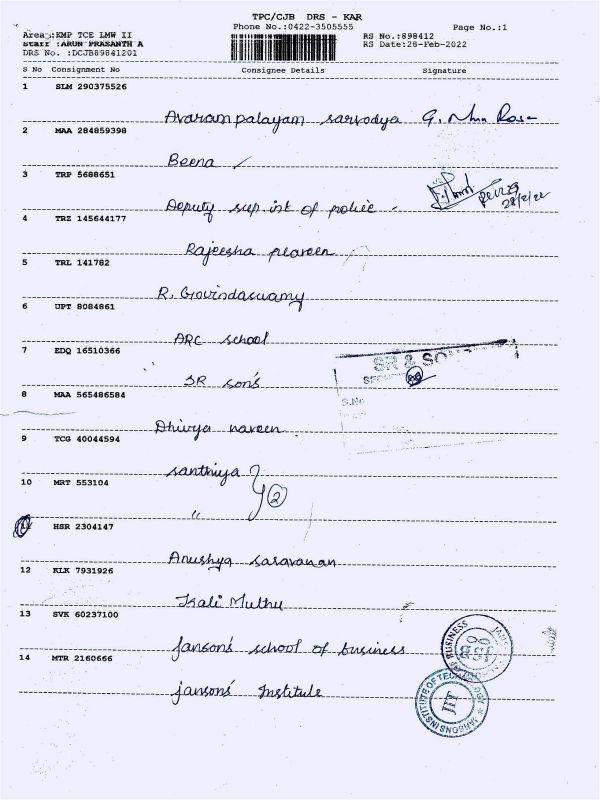 TPC/CJB DRS - KAR
Phone No.:0422-3505555
Page No.:1
Area :KMP TCE LMW II
RS No.:898412
Staff :ARUN PRASANTH A
RS Date:28-Feb-2022
DRS No. :DCJB89841201
S No Consignment No Consignee Details Signature
1 SLM 290375526
Avarampalayam sarvodya G.
2 MAA 284859398
Beena
3 TRP 5688651
Deputy sup.int of police
28/2/22
4 TRZ 145644177
Rajeesha praveen
5 TRL 141782
R. Govindaswamy
6 UPT 8084861
ARC school
7 EDQ 16510366
SR & SO
SR son's
S.No
8 MAA 565486584
Dhivya naveen
9 TCG 40044594
santhiya
10 MRT 553104
2
"
11 HSR 2304147
Anushya saravanan
12 KLK 7931926
Kali Muthu
13 SVK 60237100
Janson's school of business
JANS BUSINESS
14 MTR 2160666
Janson's Institute
JANSONS INSTITUTE OF TECHNOLOGY
JIT